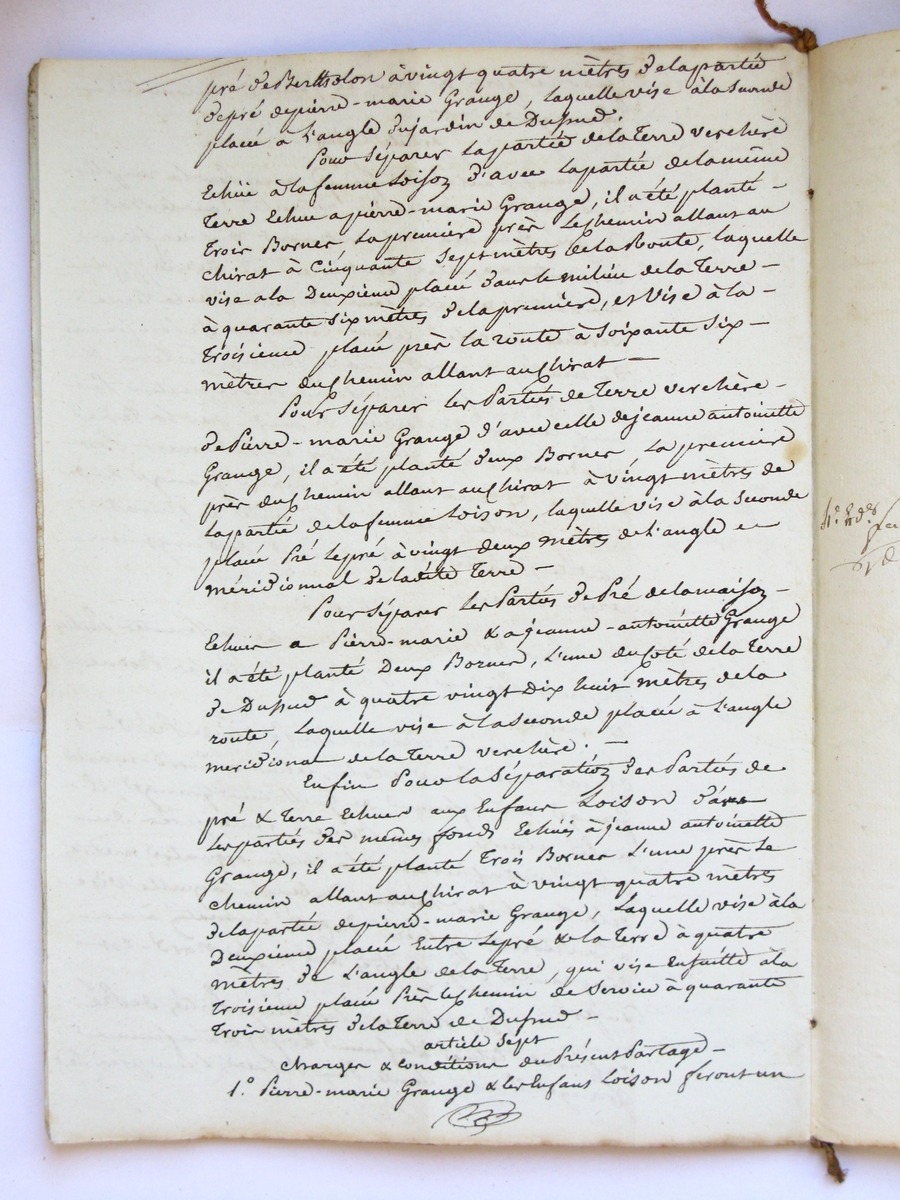 pré de Bertholon à vingt quatre mètres de la partie
de pré de pierre-marie Grange, laquelle vise à la seconde
placée a L'angle du jardin de
Pour Séparer La partie de la Terre verchère
Echüe à la femme Loison d'avec La partie de la même
Terre Echue a pierre-marie Grange, il a été planté -
trois Bornes La première près Le chemin allant au
chirat à Cinquante Sept mètres de la Route, laquelle
vise a la Deuxieme placée dans le milieu de la Terre -
à quarante Six mètres de la première, et Vise à la -
Troisieme placée près la route à Soixante Six -
mètres du chemin allant au chirat —
Pour Séparer les Parties de Terre verchère -
de Pierre-marie Grange d'avec celle de jeanne antoinette
Grange, il a été planté deux Bornes, La premiere
près du chemin allant au chirat à vingt mètres de
La partie de la femme Loison, laquelle vise à la Seconde
placée Le pré à vingt deux mètres de L'angle
méridionnal de la dite Terre —
Pour Séparer Les Parties de Pré de la maison -
Echues a Pierre-marie & a jeanne-antoinette Grange
il a été planté Deux Bornes, L'une du Coté de la Terre
de à quatre vingt Dix huit mètres de la
route, Laquelle vise à la Seconde placée à L'angle
meridional de la Terre verchère. —
Enfin Pour la Séparation des Parties de
pré & Terre Echues aux Enfans Loison d'avec
Les parties des mêmes fonds Echües à jeanne antoinette
Grange, il a été planté Trois Bornes L'une près Le
chemin allant au chirat à vingt quatre mètres
de la partie de pierre-marie Grange, Laquelle vise à la
Deuxieme placée Entre Le pré & la Terre à quatre
mètres de L'angle de la Terre, qui vise Ensuitte à la
Troisieme placée Près Le Chemin de Service à quarante
Trois mètres de la Terre de —
article Sept
Charges & Conditions du Présent Partage -
1.º Pierre-marie Grange & les Enfans Loison feront un